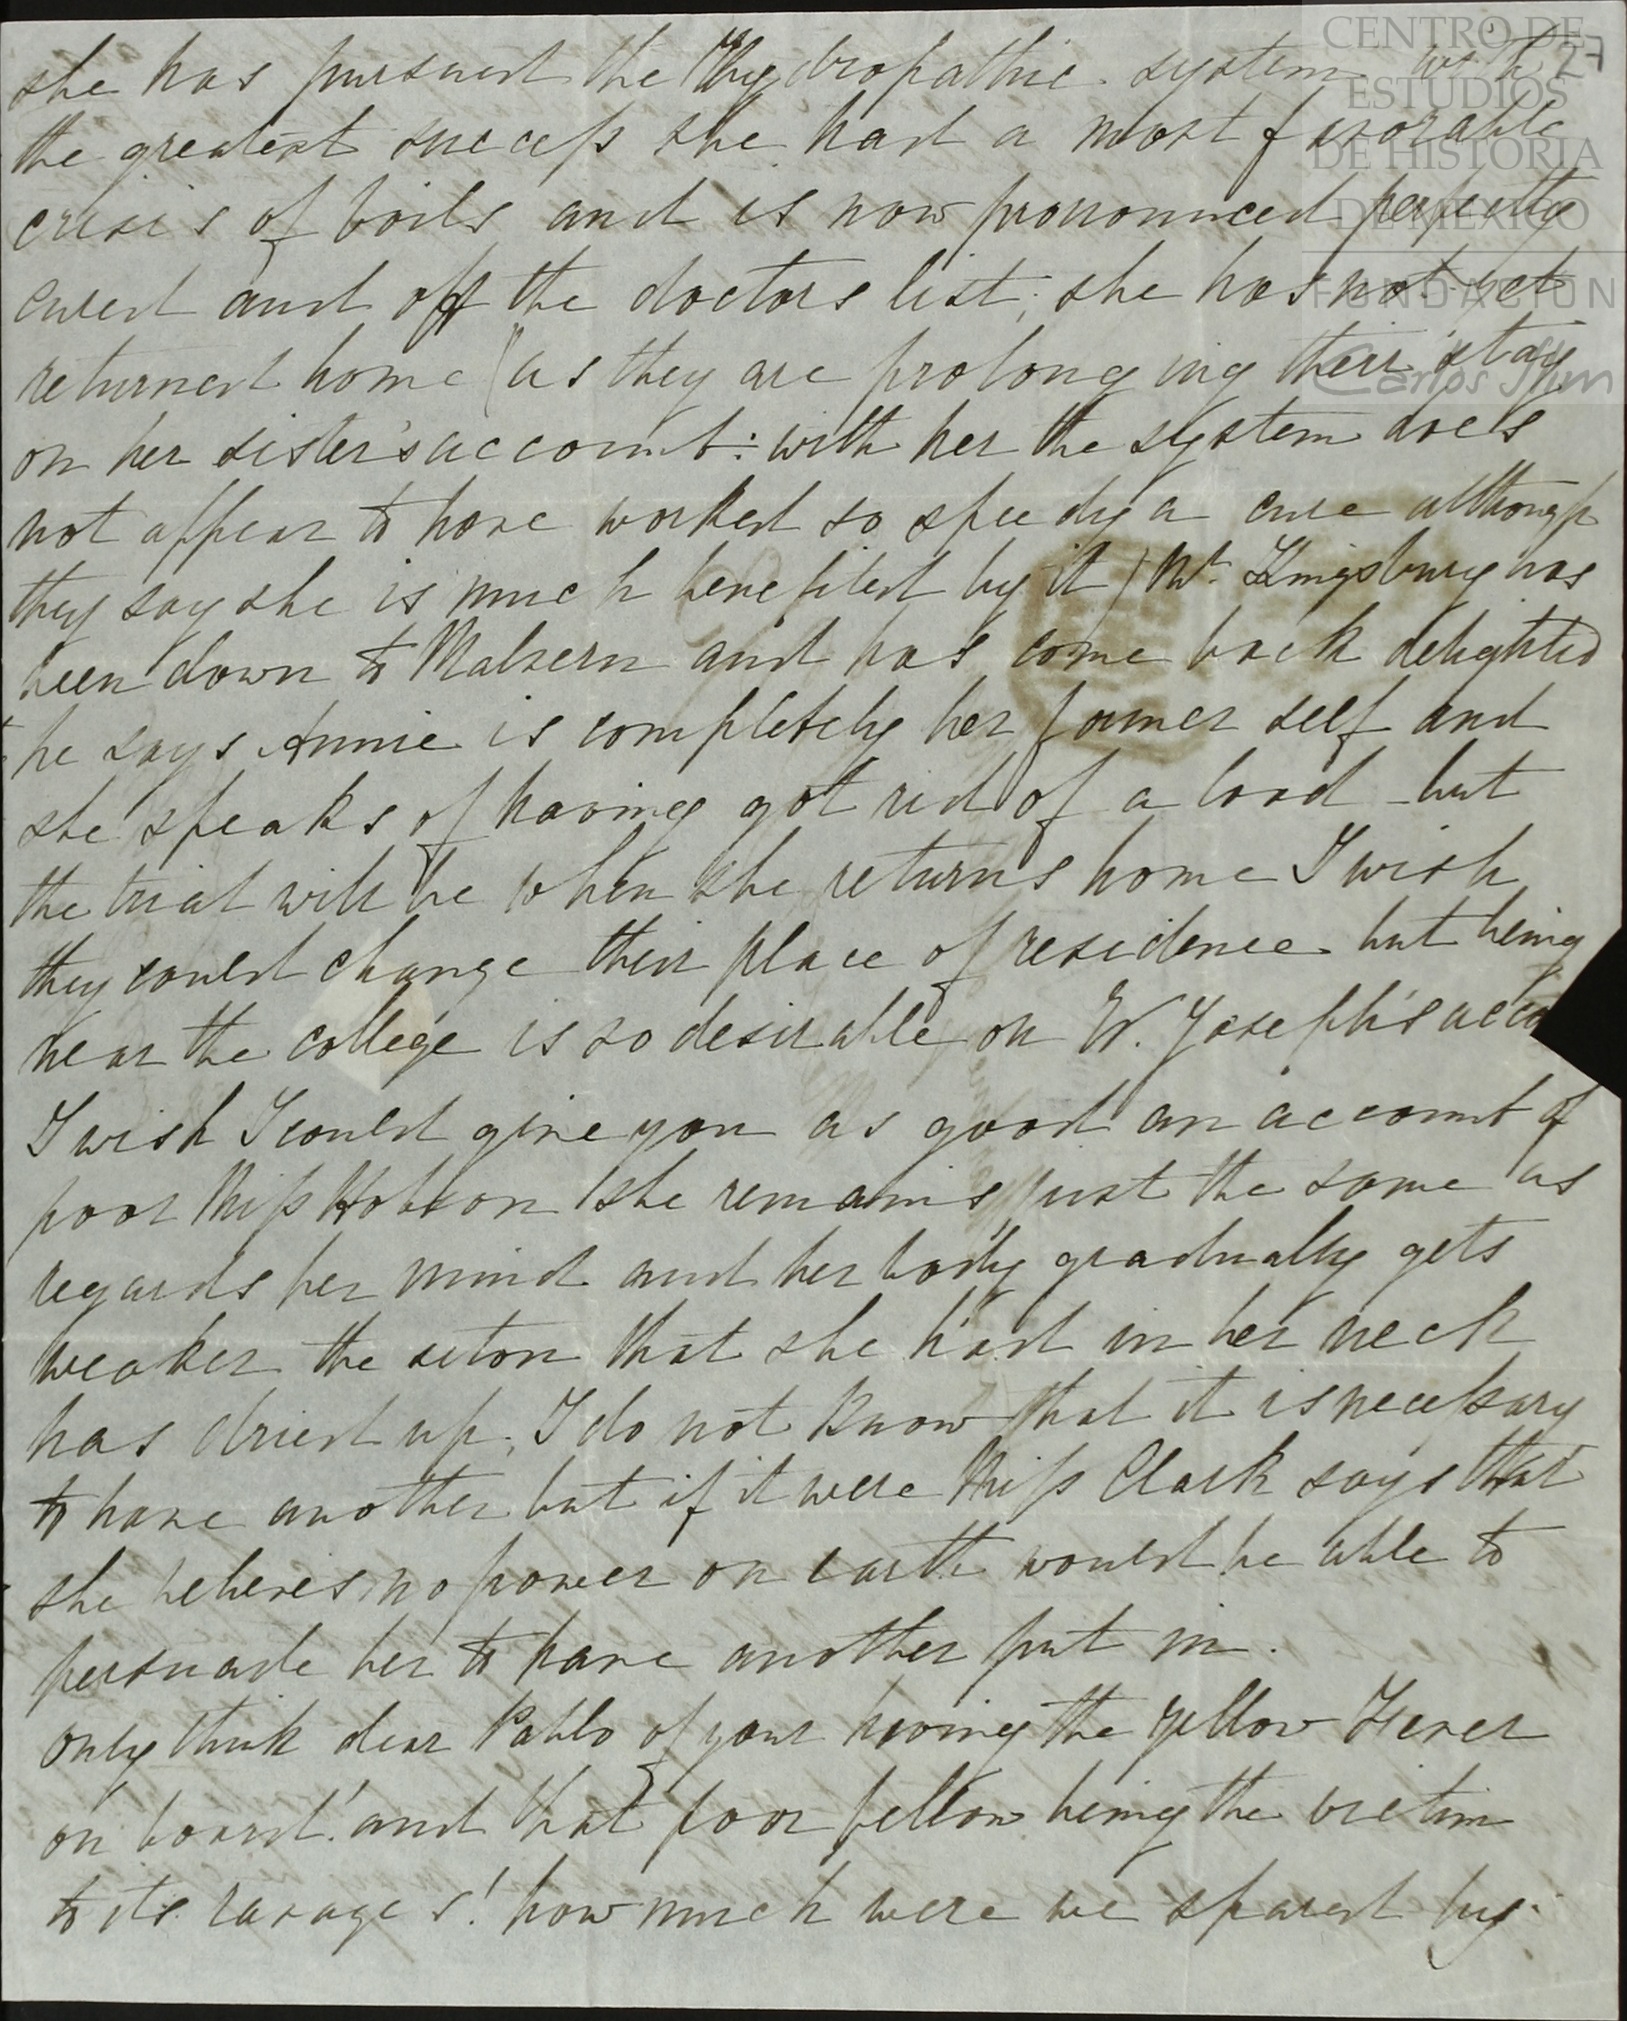 27
CENTRO DE
ESTUDIOS
DE HISTORIA
DE MEXICO
FUNDACION
Carlos Slim
she has pursued the Hydropathic system with
the greatest success she had a most favorable
crisis of boils and is now pronounced perfectly
cured and off the doctors list; she has not yet
returned home (as they are prolonging their stay
on her sister's account: with her the system does
not appear to have worked so speedy a cure although
they say she is much benefited by it) Mr. Kingsbury has
been down to Malvern and has come back delighted
he says Annie is completely her former self and
she speaks of having got rid of a load - but
the trial will be when she returns home I wish
they could change their place of residence but being
near the college is so desirable on W. Joseph's acco
I wish I could give you as good an account of
poor Miss Hobson she remains just the same as
regards her mind and her body gradually gets
weaker the seton that she had in her neck
has dried up. I do not know that it is necessary
to have another but if it were Miss Clark says that
she believes no power on earth would be able to
persuade her to have another put in.
only think dear Pablo of your having the yellow Fever
on board! and that poor fellow being the victim
to its ravages! how much were we spared by